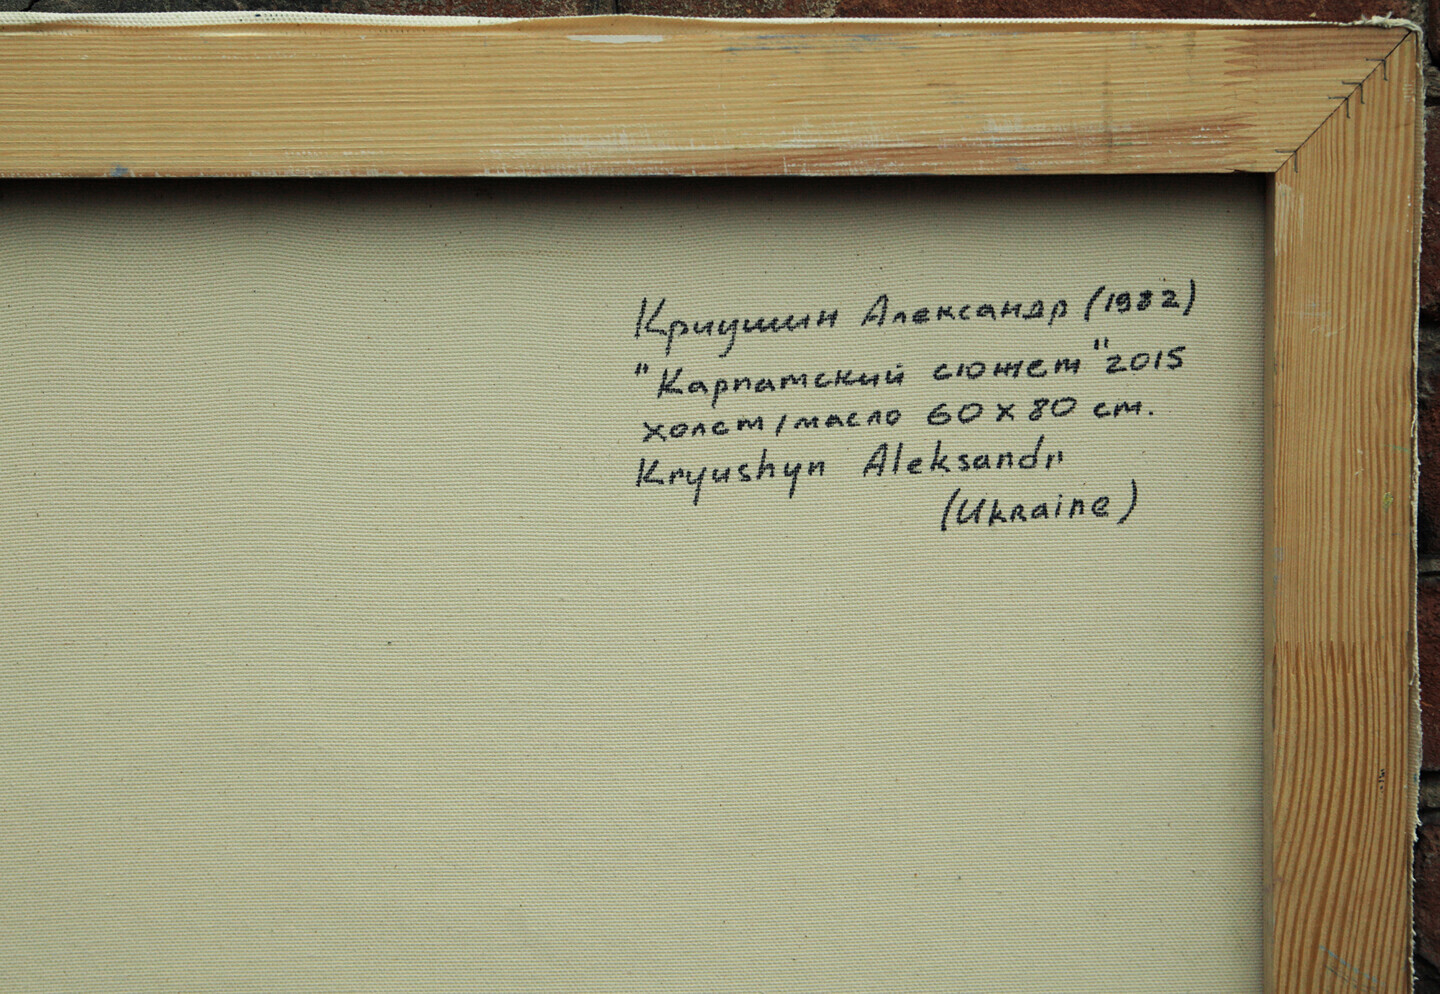 Криушин Александр (1982)
"Карпатский сюжет" 2015
холст/масло 60 x 80 см.
Kryushyn Aleksandr
(Ukraine)